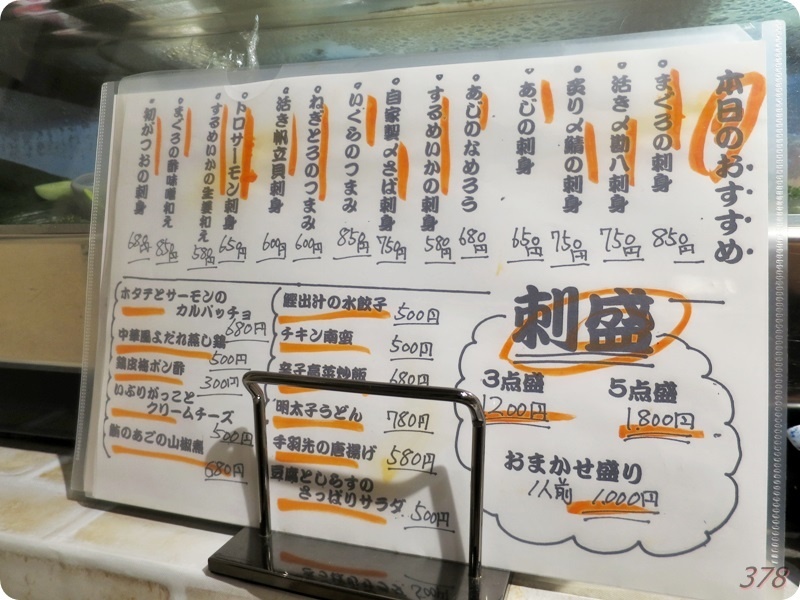 本日のおすすめ
・まぐろの刺身 850円
・活き〆勘八刺身 750円
・炙り〆鯖の刺身 750円
・あじの刺身 650円
・あじのなめろう 680円
・するめいかの刺身 580円
・自家製〆さば刺身 750円
・いくらのつまみ 850円
・ねぎとろのつまみ 600円
・活き帆立貝刺身 600円
・トロサーモン刺身 650円
・するめいかの生姜和え 580円
・まぐろの酢味噌和え 850円
・初がつおの刺身 680円
刺盛
3点盛 5点盛
1200円 1,800円
おまかせ盛り
1人前 1,000円
鰹出汁の水餃子 500円
チキン南蛮 500円
辛子高菜炒飯 680円
明太子うどん 780円
手羽先の唐揚げ 580円
豆腐としらすの
さっぱりサラダ 500円
ホタテとサーモンの
カルパッチョ 680円
中華風よだれ蒸し鶏 500円
鶏皮梅ポン酢 300円
いぶりがっこと
クリームチーズ 500円
のあごの山椒煮 680円
378